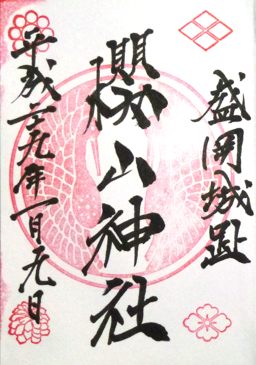 盛岡城趾
櫻山神社
平成二九年一月九日